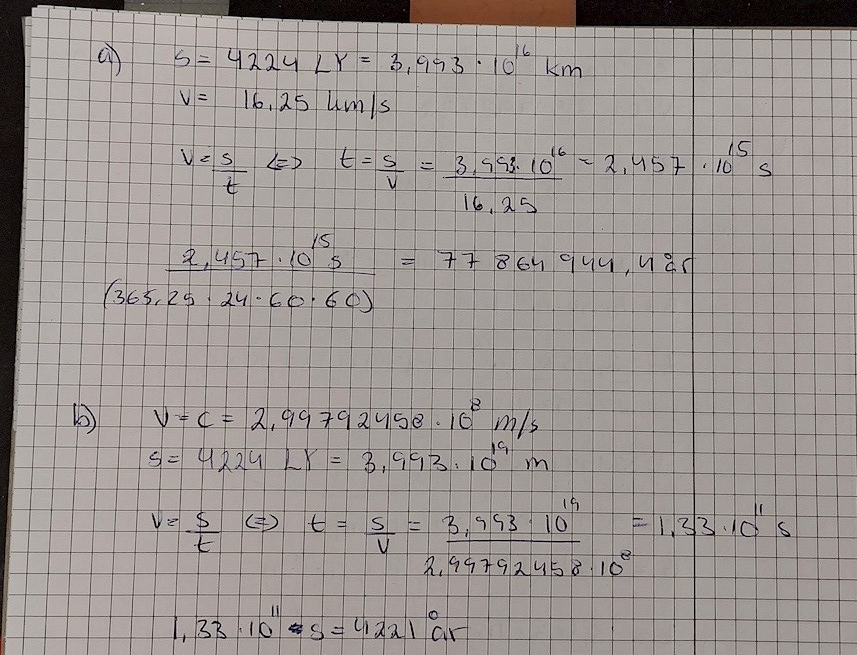 a) s = 4224 LY = 3,993 · 10^16 km
v = 16,25 km/s
v = s/t <=> t = s/v = 3,993 · 10^16 / 16,25 = 2,457 · 10^15 s
2,457 · 10^15 s / (365,25 · 24 · 60 · 60) = 77 864 944,4 år
b) v = c = 2,99792458 · 10^8 m/s
s = 4224 LY = 3,993 · 10^19 m
v = s/t <=> t = s/v = 3,993 · 10^19 / 2,99792458 · 10^8 = 1,33 · 10^11 s
1,33 · 10^11 s = 4221 år